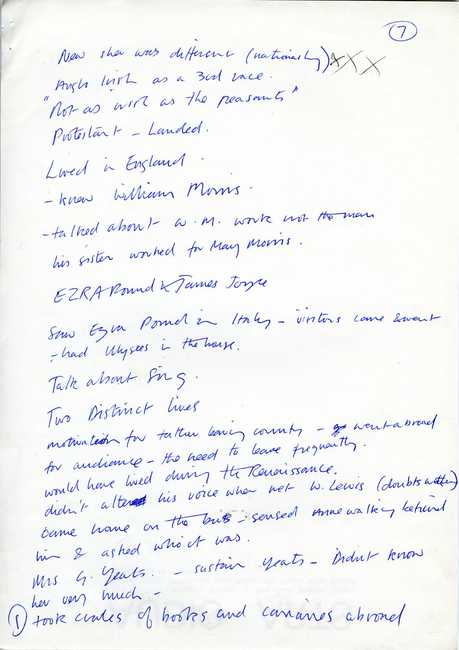 7
New she was different (nationality) XXX
Anglo Irish as a 3rd race.
"Not as Irish as the peasants"
Protestant - Landed.
Lived in England.
- knew William Morris.
- talked about W.M. work not the man
his sister worked for May Morris.
EZRA Pound & James Joyce
Saw Ezra Pound in Italy - visitors came & went
- had Ulysses in the house.
Talk about Syng.
Two Distinct lives
motivation for father leaving country - went abroad
for audience - the need to leave frequently.
would have lived during the Renaissance.
didn't alter his voice when met W. Lewis (doubts
came home on the bus - sensed Anne walking behind
him & asked who it was.
Mrs G. Yeats. - sustain Yeats - Didn't know
her very much -
1) took crates of books and canaries abroad